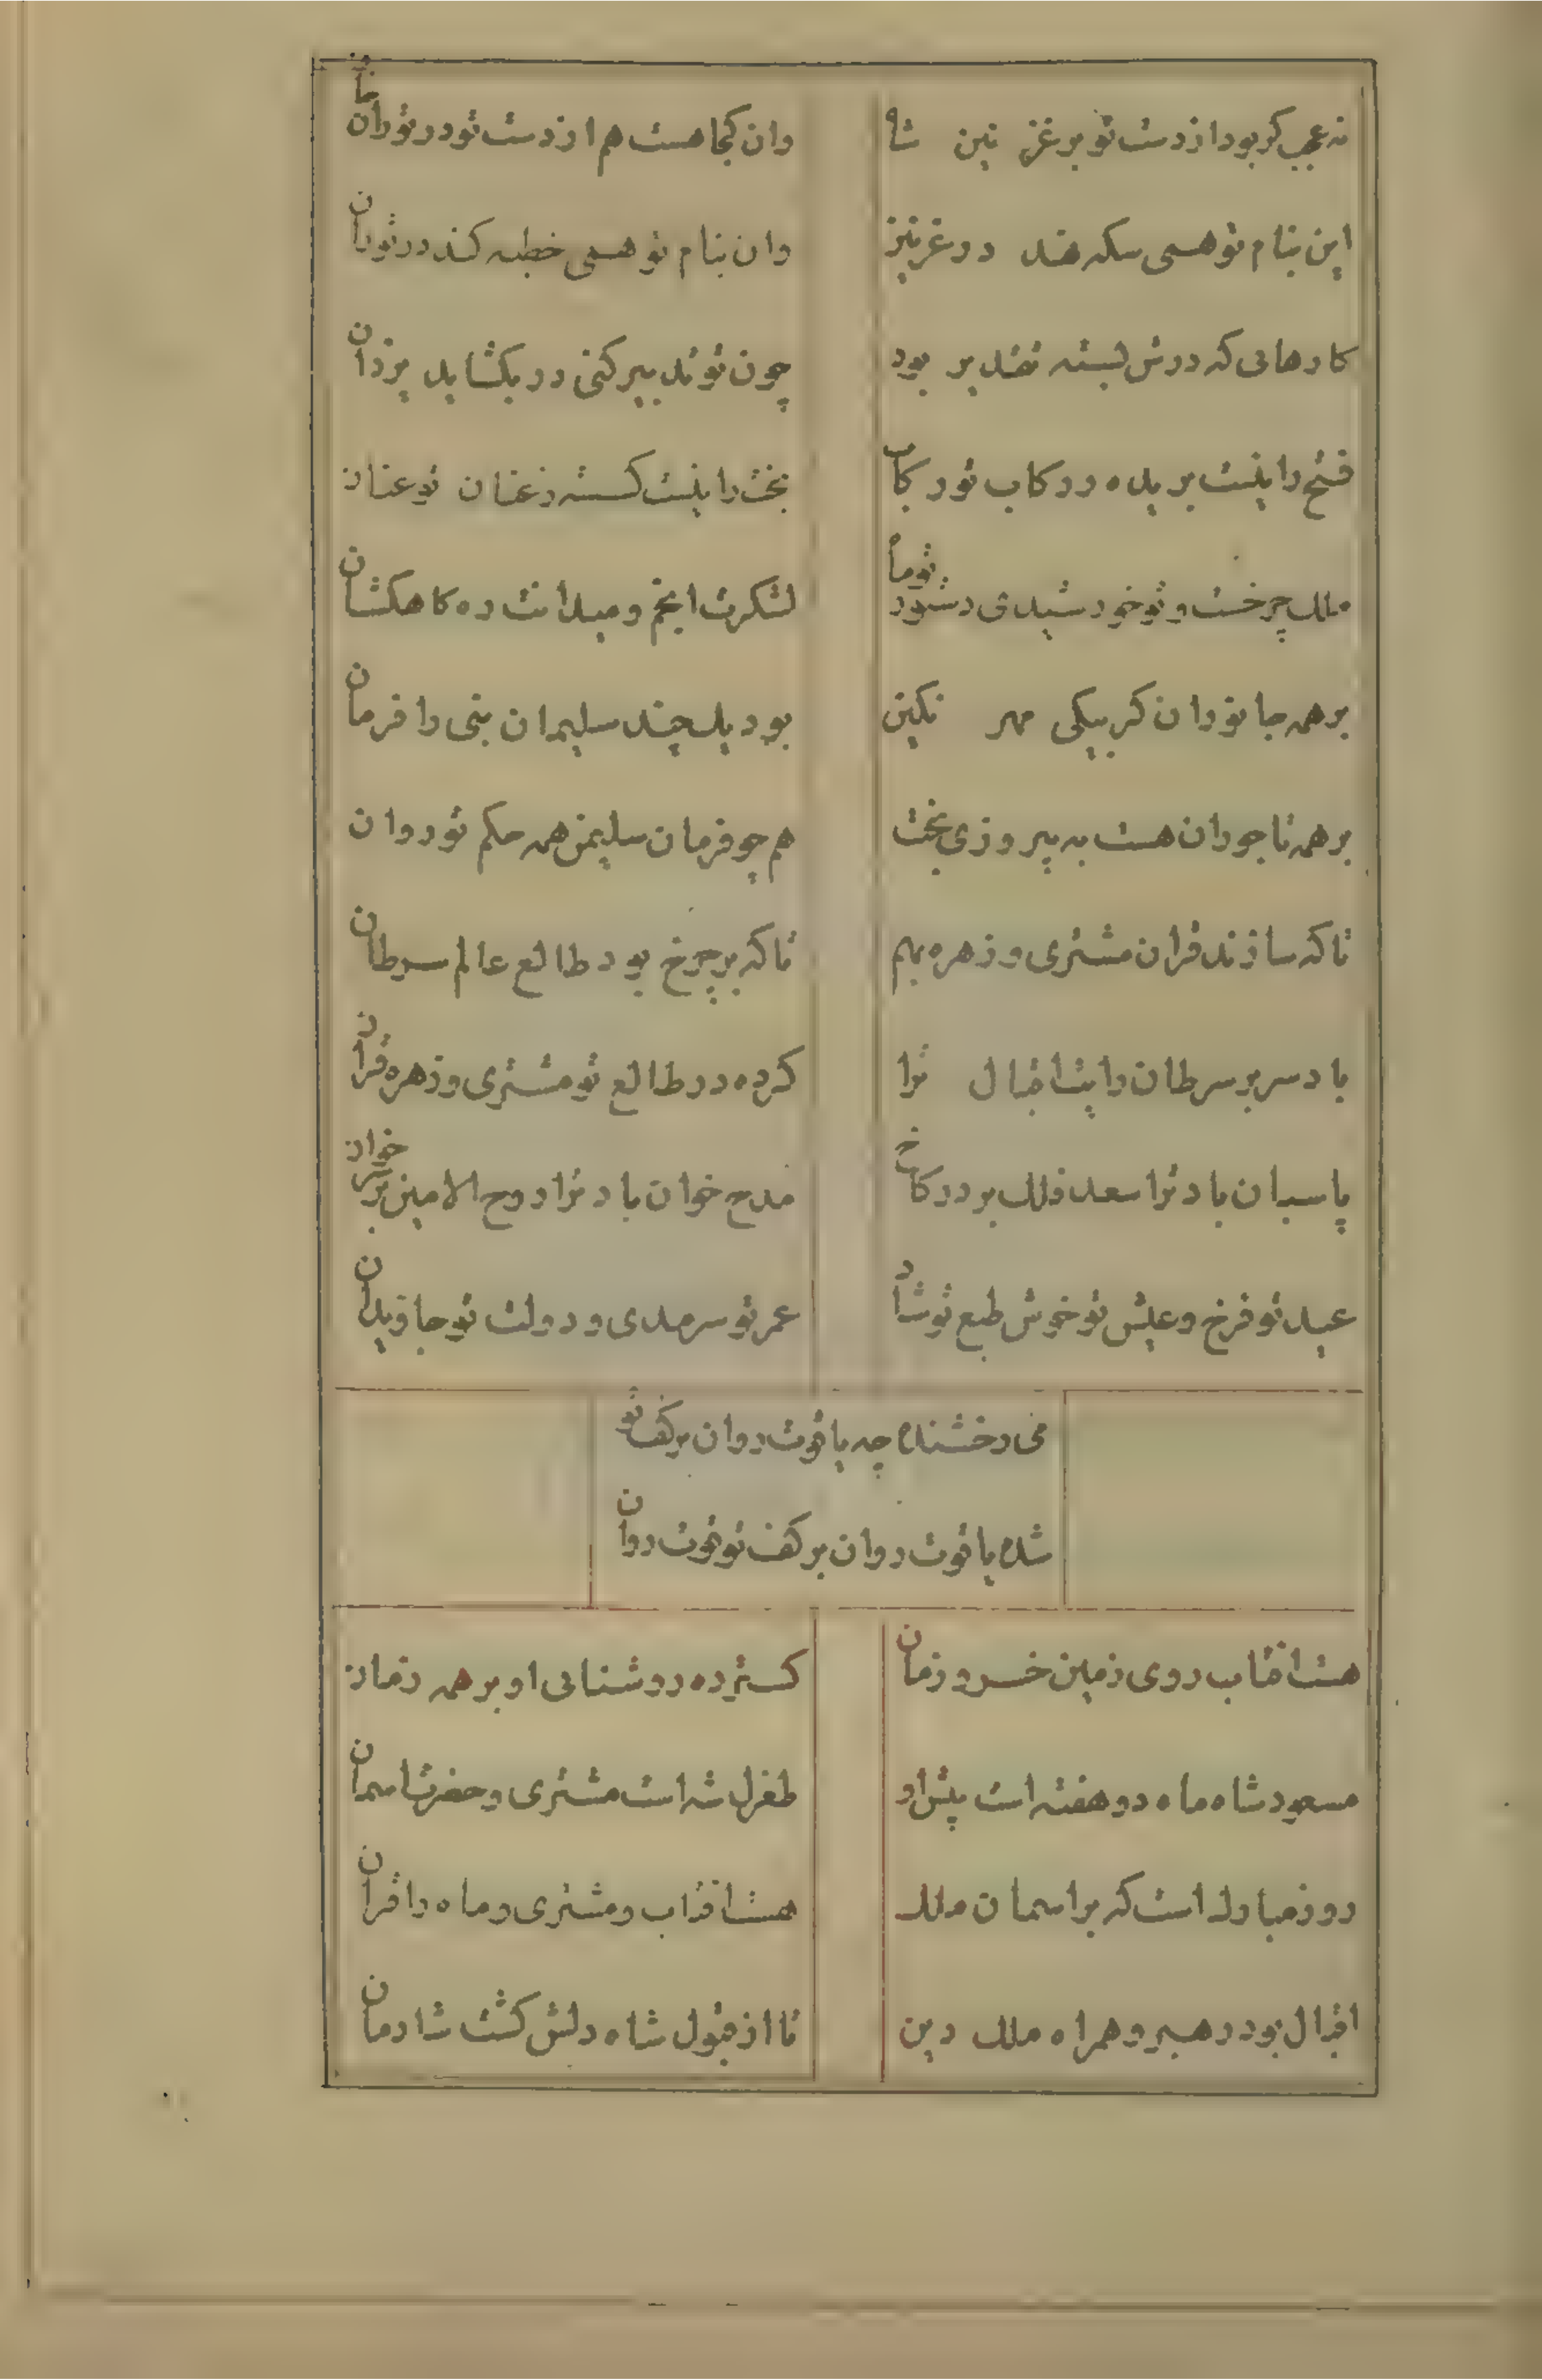 نه عجب کر بود از دست تو بر غزنین شاه
وان کجا هست هم از دست تو در توران خان
این بنام تو همی سکه نهد در غزنیز
وان بنام تو همی خطبه کند در توران
کارهائی که درش بسته تقدیر بود
چون تو تدبیر کنی در بکشاید یزدان
فتح را نیست بریده ز رکاب تو رکاب
بخت را نیست کسسته ز عنان تو عنان
ملک چرخست و تو خورشیدی و دستور تو ماه
لشکرت انجم و میدانت ره کاهکشان
بر همه جانوران کر بیکی مهر نکین
بود یک چند سلیمان نبی را فرمان
بر همه تاجوران هست به پیروزی بخت
هم چو فرمان سلیمن همه حکم تو روان
تا که سازند قران مشتری و زهره بهم
تا که بر چرخ بود طالع عالم سرطان
باد سر بر سرطان رایت اقبال ترا
کرده در طالع تو مشتری و زهره قران
پاسبان باد ترا سعد فلک بر در کاخ
مدح خوان باد ترا روح الامین بر سر خوان
عید تو فرخ و عیش تو خوش طبع تو شاد
عمر تو سرمدی و دولت تو جاویدان
می درخشنده چه یاقوت روان بر کف تو
شده یاقوت روان بر کف تو قوت روان
هست افتاب روی زمین خسرو زمان
کسترده روشنائی او بر همه زمان
مسعود شاه ماه دو هفته است پیش او
طغرل شه است مشتری و حضرت اسمان
روز مبارک است که بر اسمان ملک
هست افتاب و مشتری و ماه را قران
اقبال بود رهبر و همراه ملک دین
تا از قبول شاه دلش کشت شادمان